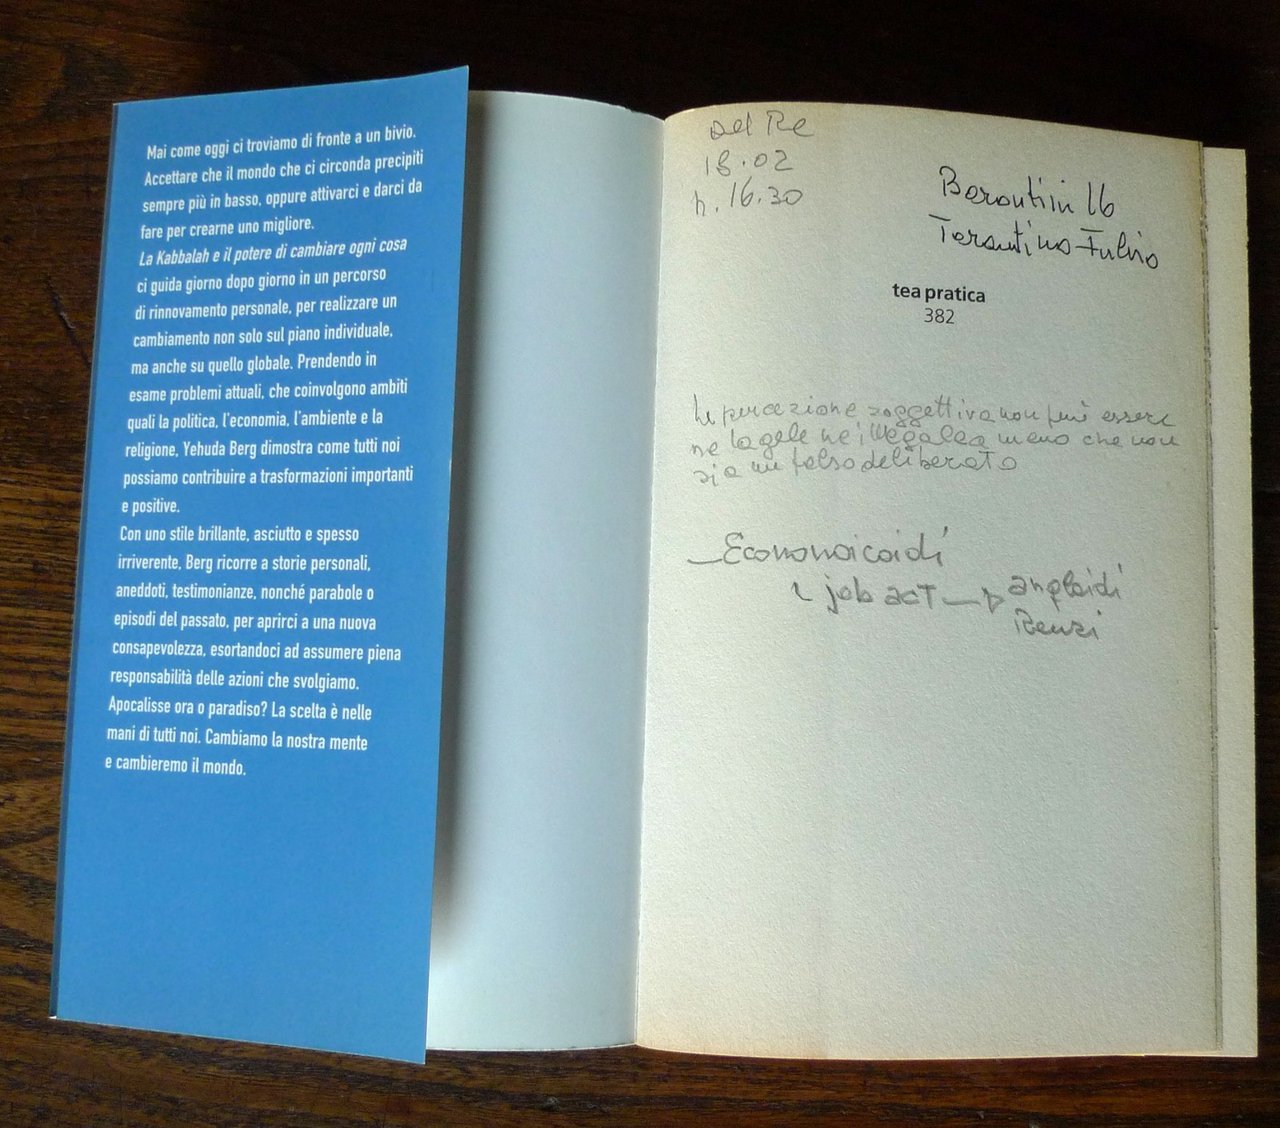 Mai come oggi ci troviamo di fronte a un bivio.
Accettare che il mondo che ci circonda precipiti
sempre più in basso, oppure attivarci e darci da
fare per crearne uno migliore.
La Kabbalah e il potere di cambiare ogni cosa
ci guida giorno dopo giorno in un percorso
di rinnovamento personale, per realizzare un
cambiamento non solo sul piano individuale,
ma anche su quello globale. Prendendo in
esame problemi attuali, che coinvolgono ambiti
quali la politica, l'economia, l'ambiente e la
religione, Yehuda Berg dimostra come tutti noi
possiamo contribuire a trasformazioni importanti
e positive.
Con uno stile brillante, asciutto e spesso
irriverente, Berg ricorre a storie personali,
aneddoti, testimonianze, nonché parabole o
episodi del passato, per aprirci a una nuova
consapevolezza, esortandoci ad assumere piena
responsabilità delle azioni che svolgiamo.
Apocalisse ora o paradiso? La scelta è nelle
mani di tutti noi. Cambiamo la nostra mente
e cambieremo il mondo.
Del Re
18.02
h. 16.30
16
Tarantino Fulvio
tea pratica
382
La percezione soggettiva non può essere
ne legale ne illegale a meno che non
sia un falso deliberato
Economicoidi
job act angloidi
Renzi